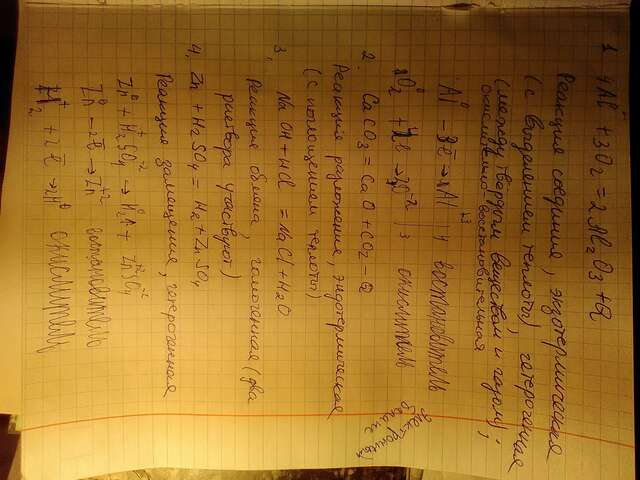 1. 4Al⁰ + 3O₂ = 2Al₂O₃ + Q
Реакция соединия, экзотермическая
(с выделением теплоты) гетерогенная
(между твёрдым веществом и газом);
окислительно восстановительная
Al⁰ - 3ē → Al⁺³ 4 востановитель
O₂⁰ + → 2O⁻² 3 окислитель
электронный баланс
2. CaCO₃ = CaO + CO₂ - Q
Реакция разложения, эндотермическая
(с поглощением теплоты)
3. NaOH + HCl = NaCl + H₂O
Реакция обмена, гомогенная (два
раствора участвуют)
4. Zn + H₂SO₄ = H₂ + ZnSO₄
Реакция замещения, гетерогенная
Zn⁰ + H₂⁺SO₄⁻² → + Zn⁺²SO₄⁻²
Zn⁰ - 2ē → Zn⁺² востановитель
H₂⁺ + 2ē → 2H⁰ окислитель